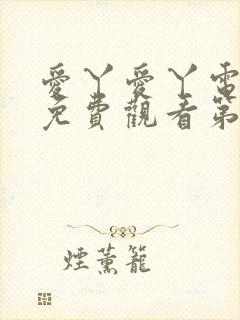 愛丫愛丫電
免費觀看第
煙薰籠